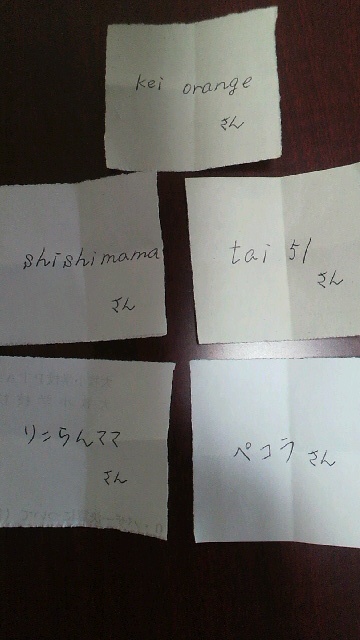 kei orange
さん
shishimama
さん
tai 51
さん
りこらんママ
さん
ペコラ さん